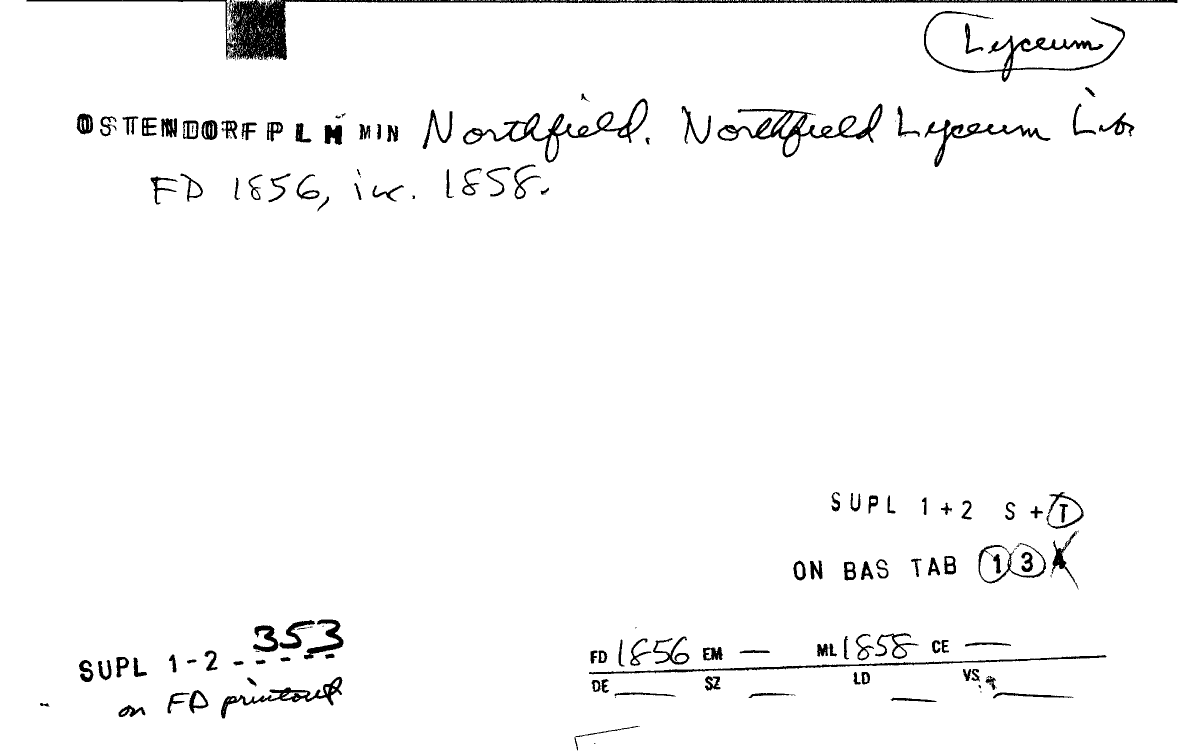 Lyceum
OSTENDORF P L M MIN Northfield. Northfield Lyceum Lib.
FD 1856, inc. 1858.
SUPL 1+2 S + T
ON BAS TAB 1 3
SUPL 1-2 - 353
on FD printout
FD 1856 EM — ML 1858 CE —
DE ___ SZ ___ LD ___ VS ___